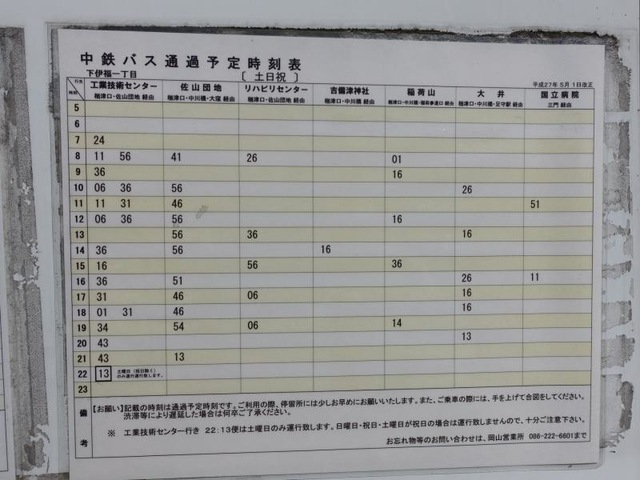 中鉄バス通過予定時刻表
下伊福一丁目 〔 土日祝 〕 平成27年 5月 1日改正
行先 時間 工業技術センター 佐山団地 リハビリセンター 吉備津神社 稲荷山 大井 国立病院
楢津口・佐山団地 経由 楢津口・中川橋・大窪 経由 楢津口・佐山団地 経由 楢津口・中川橋 経由 三門 経由
5
6
7 24
8 11 56 41 26 01
9 36 16
10 06 36 56 26
11 11 31 46 51
12 06 36 56 16
13 56 36 16
14 36 56 16
15 16 56 36
16 36 51 26 11
17 31 46 06 16
18 01 31 46 16
19 34 54 06 14
20 43 13
21 43 13
22 13 土曜日(祝日除く)のみ運行致します。
23
備考
【お願い】記載の時刻は通過予定時刻です。ご利用の際、停留所には少しお早めにお願いいたします。また、ご乗車の際には、手を上げて合図をしてください。
渋滞等により遅延した場合は何卒ご了承ください。
※ 工業技術センター行き 22:13便は土曜日のみ運行致します。日曜日・祝日・土曜日が祝日の場合は運行致しませんので、十分ご注意下さい。
お忘れ物等のお問い合わせは、岡山営業所 086-222-6601まで